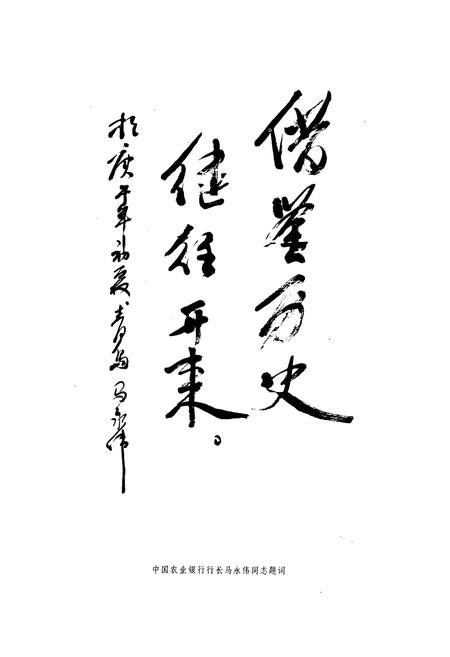 借鉴历史
继往开来。
于庚午年初夏於青岛 马永伟
中国农业银行行长马永伟同志题词